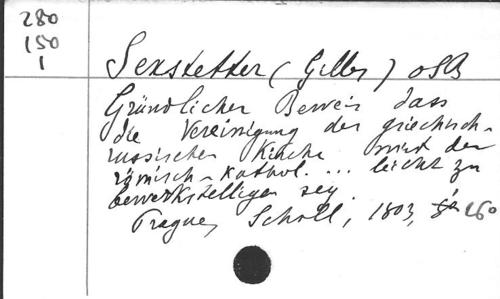 280
150
1
Sexstetter (Gilles) OSB
Gründlicher Beweis dass
die Vereinigung der griechisch-
russischen Kirche mit der
römisch-kathol. ... leicht zu
bewerkstelligen sey.
Prague, Scholl, 1803, 8° 260